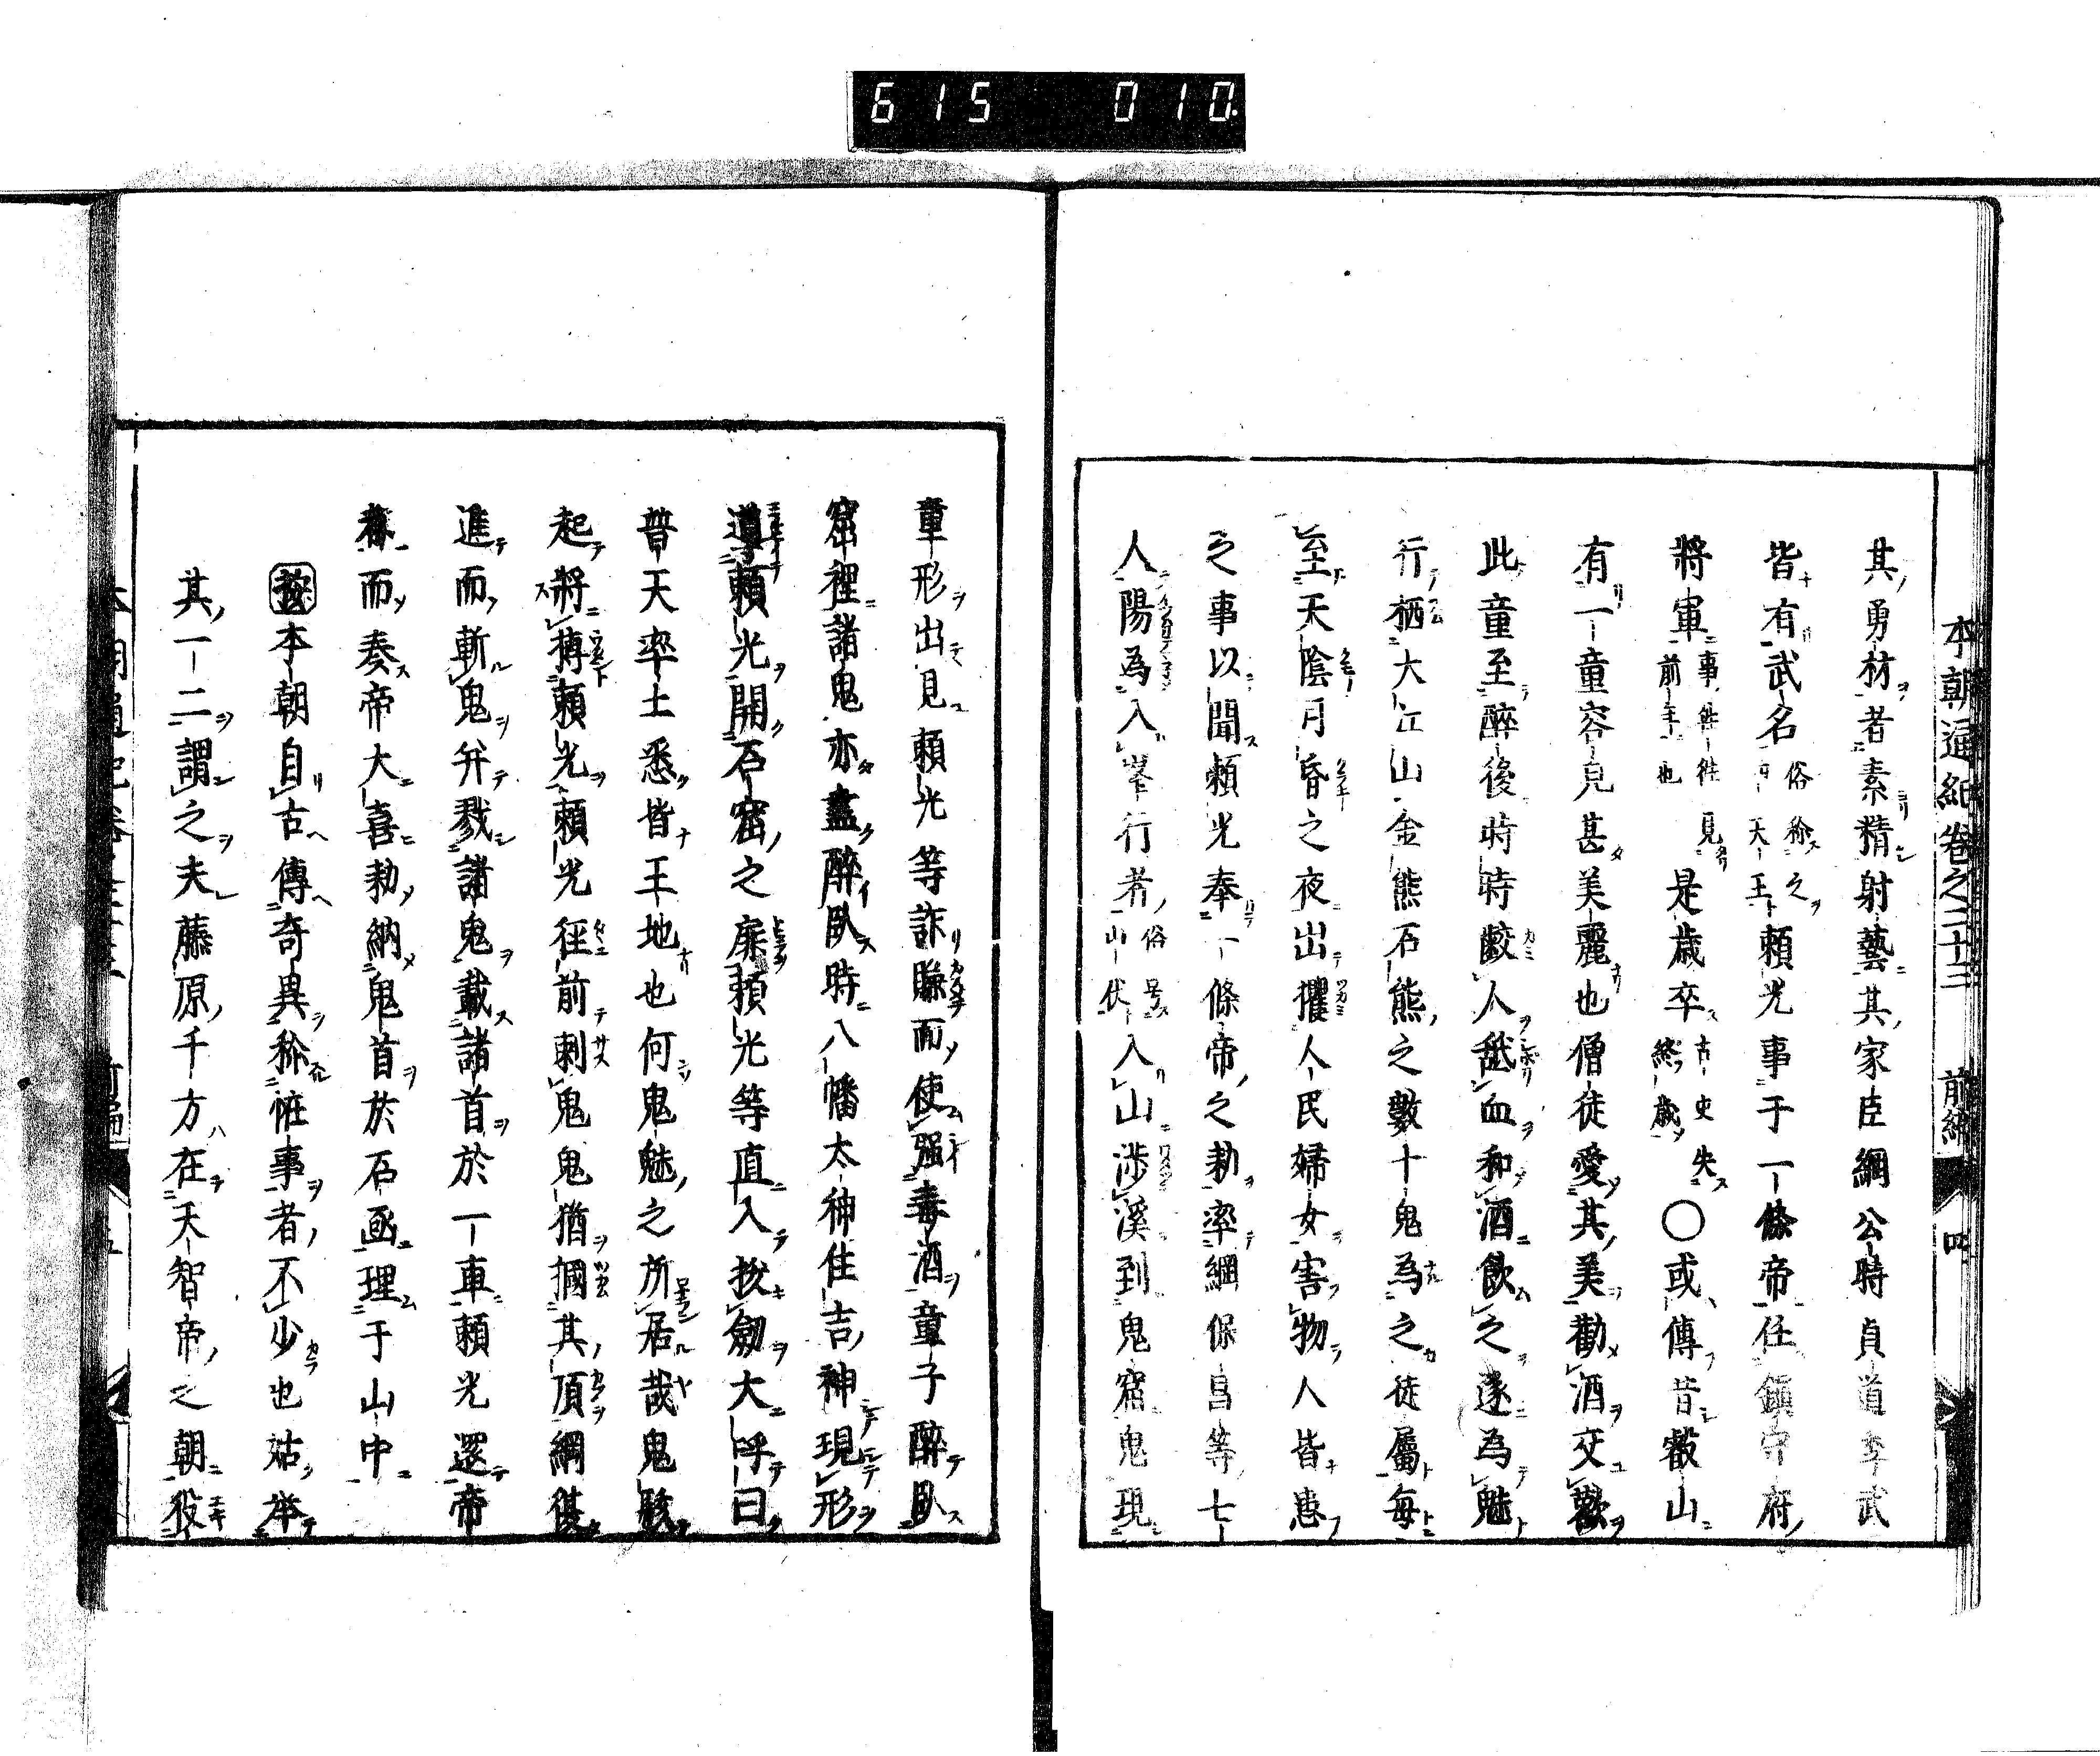 615 010
本朝通紀卷之二十三 前編 四
其勇材者素精射藝其家臣綱公時貞道季武
皆有武名俗稱之四天王頼光事于一條帝任鎭守府
將軍事件往前年也見是歳卒古史失終歳〇或傳昔叡山
有一童容皃甚美麗也僧徒愛其美勸酒交歡
此童至醉後時時齩人舐血和酒飲之遂為魅
行栖大江山金熊石熊之數十鬼為之徒屬毎
至天陰月昏之夜出攫人民婦女害物人皆患
之事以聞頼光奉一條帝之勅率綱保昌等七
人陽為入峯行者俗号山伏入山渉溪到鬼窟鬼現
童形出見頼光等詐賺而使強毒酒童子醉臥
窟裡諸鬼亦盡醉臥時八幡太神住吉神現形
導頼光開石窟之扉頼光等直入拔劔大呼曰
普天率土悉皆王地也何鬼魅之所居哉鬼駭
起將搏頼光頼光徑前刺鬼鬼猶摑其頂綱保
進而斬鬼并戮諸鬼載諸首於一車頼光還帝
而奏帝大喜勅納鬼首於石凾理于山中
按本朝自古傳奇異稱恠事者不少也姑举
其一二謂之夫藤原千方在天智帝之朝役